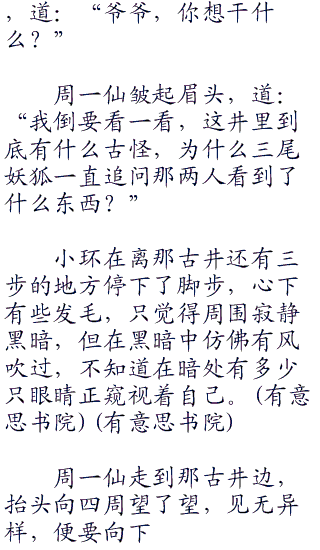 ，道：“爷爷，你想干什
么？”
周一仙皱起眉头，道：
“我倒要看一看，这井里到
底有什么古怪，为什么三尾
妖狐一直追问那两人看到了
什么东西？”
小环在离那古井还有三
步的地方停下了脚步，心下
有些发毛，只觉得周围寂静
黑暗，但在黑暗中仿佛有风
吹过，不知道在暗处有多少
只眼睛正窥视着自己。(有意
思书院) (有意思书院)
周一仙走到那古井边，
抬头向四周望了望，见无异
样，便要向下